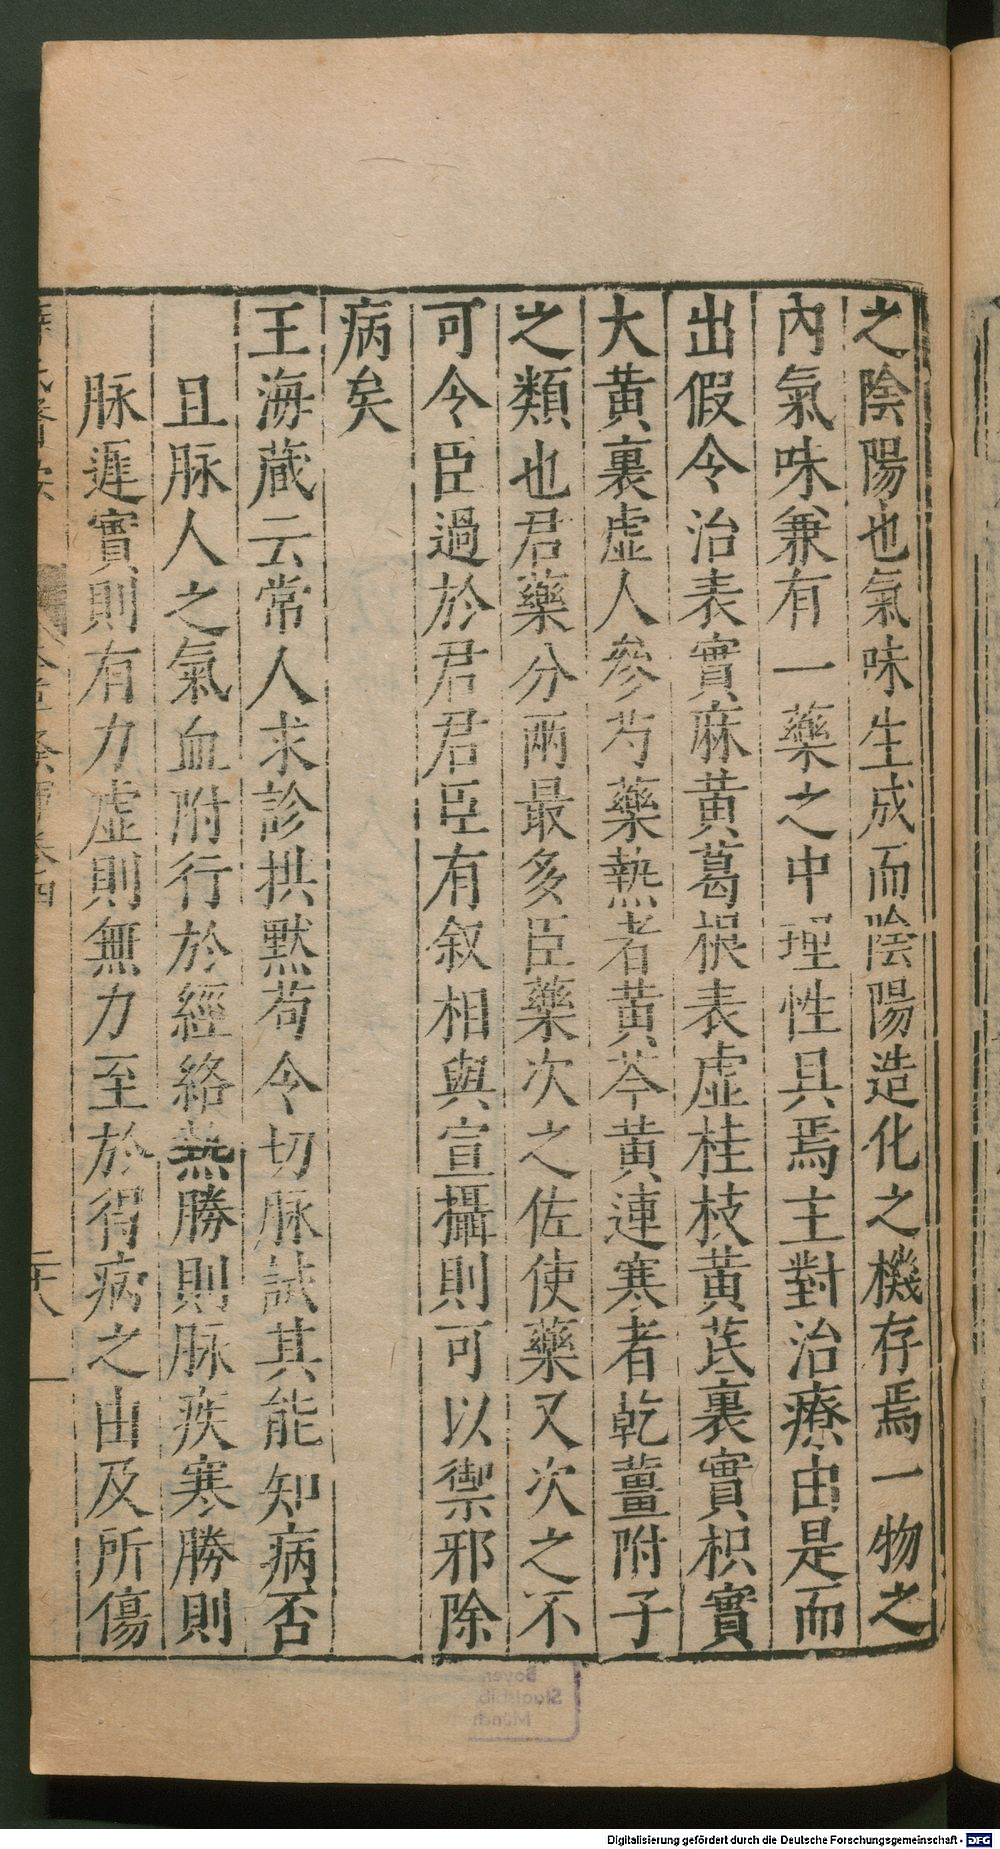 之陰陽也氣味生成而陰陽造化之機存焉一物之
內氣味兼有一藥之中理性具焉主對治療由是而
出假令治表實麻黃葛根表虛桂枝黃芪裏實枳實
大黃裏虛人參芍藥熱者黃芩黃連寒者乾薑附子
之類也君藥分兩最多臣藥次之佐使藥又次之不
可令臣過於君君臣有叙相與宣攝則可以禦邪除
病矣
王海藏云常人求診拱默苟令切脉試其能知病否
且脉人之氣血附行於經絡熱勝則脉疾寒勝則
脉遲實則有力虛則無力至於得病之由及所傷
卷四
二十八
Bayer
Staatsbib
Münch
Digitalisierung gefördert durch die Deutsche Forschungsgemeinschaft - DFG